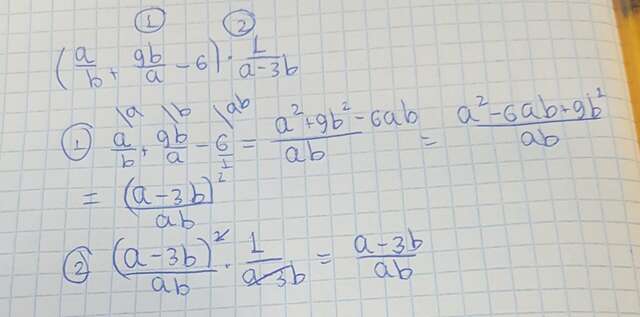 ① ②
(a/b + 9b/a - 6) · 1/(a-3b)
\a \b \ab
① a/b + 9b/a - 6/1 = (a²+9b²-6ab)/ab = (a²-6ab+9b²)/ab
= (a-3b)²/ab
② (a-3b)²/ab · 1/(a-3b) = (a-3b)/ab